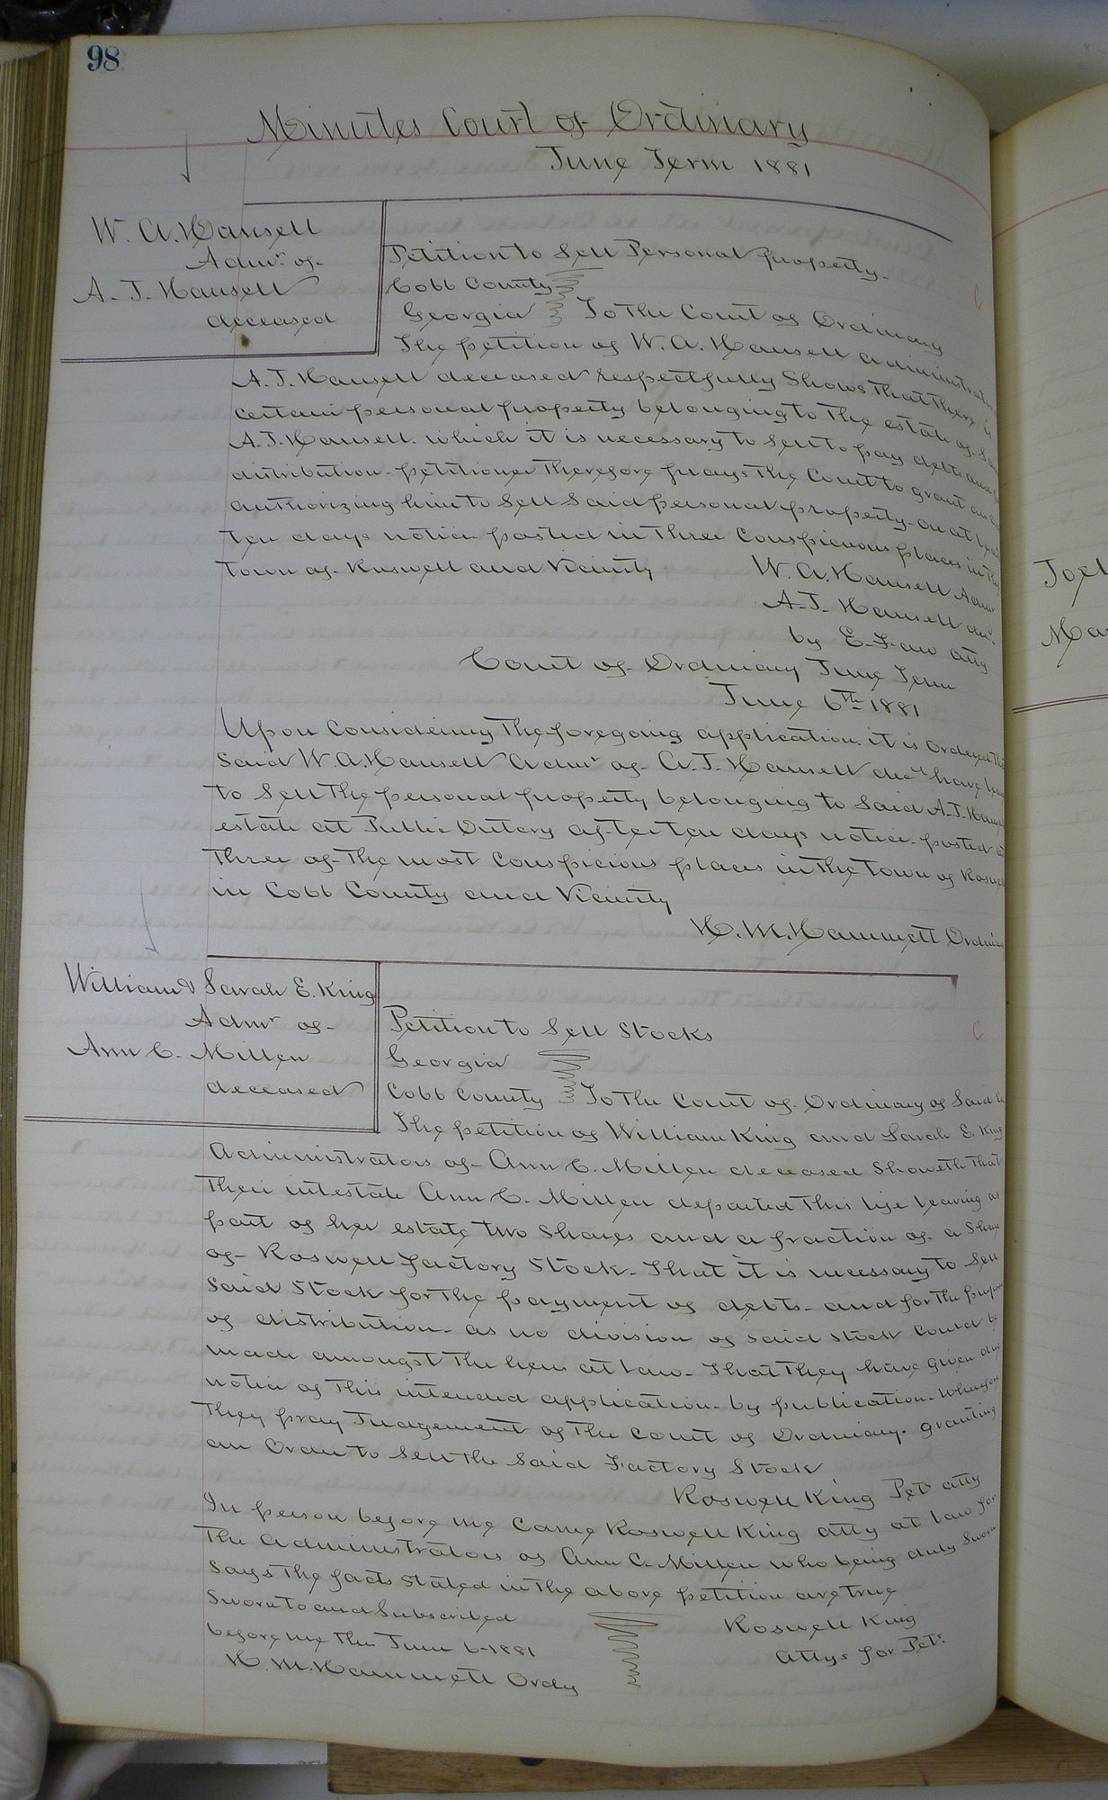 98
Minutes Court of Ordinary
June Term 1881
W. A. Hansell
Admr of
A. J. Hansell
deceased
Petition to Sell Personal property
Cobb County
Georgia To the Court of Ordinary
The petition of W. A. Hansell administrator
A. J. Hansell deceased respectfully Shows That There is
certain personal property belonging to The estate of
A. J. Hansell which it is necessary to Sell to pay debts and
distribution. petitioner Therefore prays The Court to grant an
authorizing him to Sell Said personal property on at
Ten days notice posted in Three Conspicuous places in
Town of Roswell and Vicinity W. A. Hansell Admr
A. J. Hansell decd
by E. Faw atty
Court of Ordinary June Term
June 6th 1881
Upon Considering The foregoing application it is ordered
Said W A. Hansell Admr of A. J. Hansell decd have
to Sell The personal property belonging to Said A. J.
estate at Public Outcry after ten days notice posted
Three of The most Conspicious places in The Town of
in Cobb County and Vicinity
H. M. Hammett
William & Sarah E. King
Admr of
Ann C. Millen
deceased
Petition to Sell Stocks
Georgia
Cobb County To The Court of Ordinary of Said
The petition of William King and Sarah E. King
Administrators of Ann C. Millen deceased Showeth That
Their intestate Ann C. Millen departed This life leaving as
part of her estate two Shares and a fraction of a Share
of Roswell Factory Stock. That it is necessary to Sell
Said Stock for The payment of debts and for The
of distribution as no division of Said Stock Could be
made amongst The heirs at law. That They have given due
notice of This intended application by publication. Wherefore
They pray Judgement of The Court of Ordinary granting
an Order to Sell The Said Factory Stock
Roswell King Petr atty
In person before me Came Roswell King atty at law for
The Administrators of Ann C. Millen who being duly Sworn
Says The facts Stated in The above petition are true
Sworn to and Subscribed
before me This June 6-1881
H. M. Hammett Ordy
Roswell King
Attys for Petr
Joel